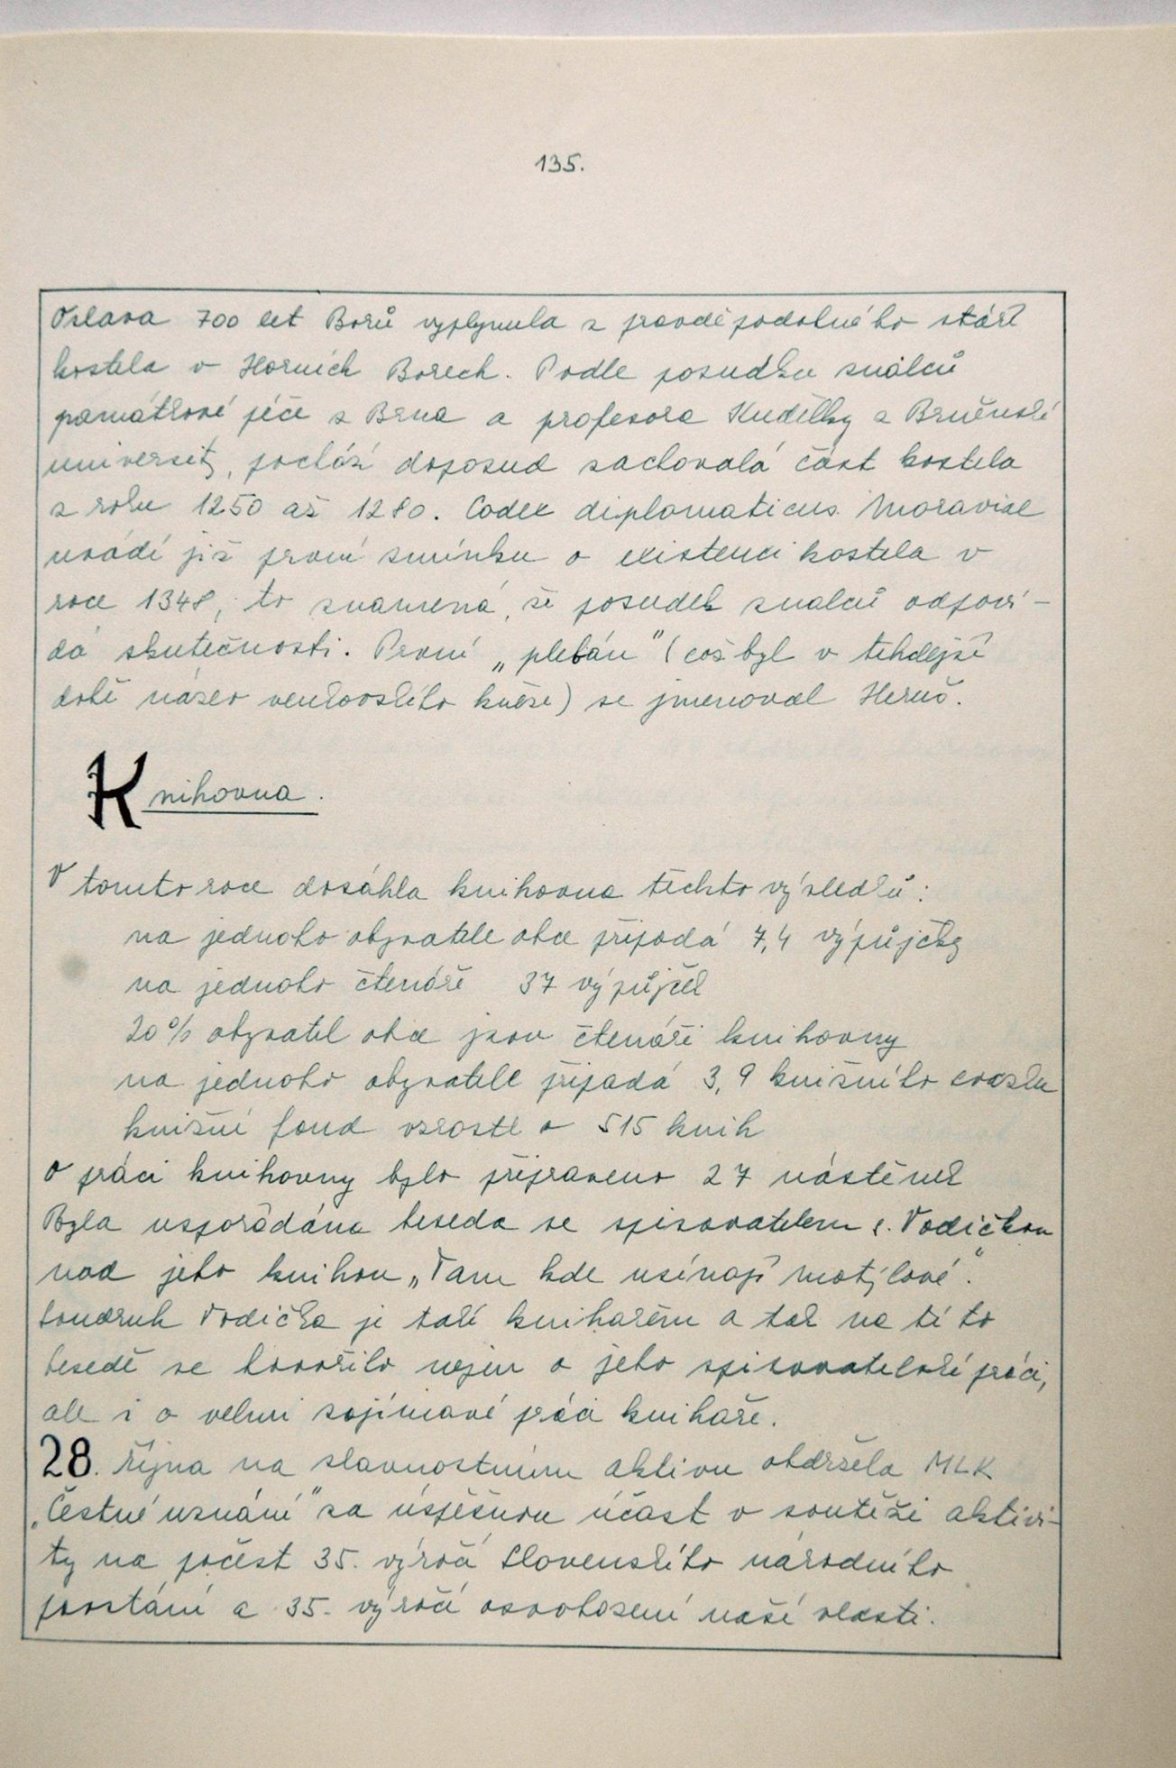 135.
Oslava 700 let Borů vyplynula z pravděpodobného stáří
kostela v Horních Borech. Podle posudku znalců
památkové péče z Brna a profesora Kudělky z Brněnské
university, pochází doposud zachovalá část kostela
z roku 1250 až 1280. Codex diplomaticus Moraviae
uvádí již první zmínku o existenci kostela v
roce 1348, to znamená, že posudek znalců odpoví-
dá skutečnosti. První „plebán" (což byl v tehdejší
době název venkovského kněze) se jmenoval
Knihovna.
V tomto roce dosáhla knihovna těchto výsledků:
na jednoho obyvatele obce připadá 7,4 výpůjčky
na jednoho čtenáře 37 výpůjček
20% obyvatel obce jsou čtenáři knihovny
na jednoho obyvatele připadá 3,9 knižního svazku
knižní fond vzrostl o 515 knih
O práci knihovny bylo připraveno 27 nástěnek
Byla uspořádána beseda se spisovatelem s. Vodičkou
nad jeho knihou „Tam kde usínají motýlové".
Soudruh Vodička je také knihařem a tak na této
besedě se hovořilo nejen o jeho spisovatelské práci,
ale i o velmi zajímavé práci knihaře.
28. října na slavnostním aktivu obdržela MLK
„Čestné uznání" za úspěšnou účast v soutěži aktivi-
ty na počest 35. výročí Slovenského národního
povstání a 35. výročí osvobození naší vlasti.